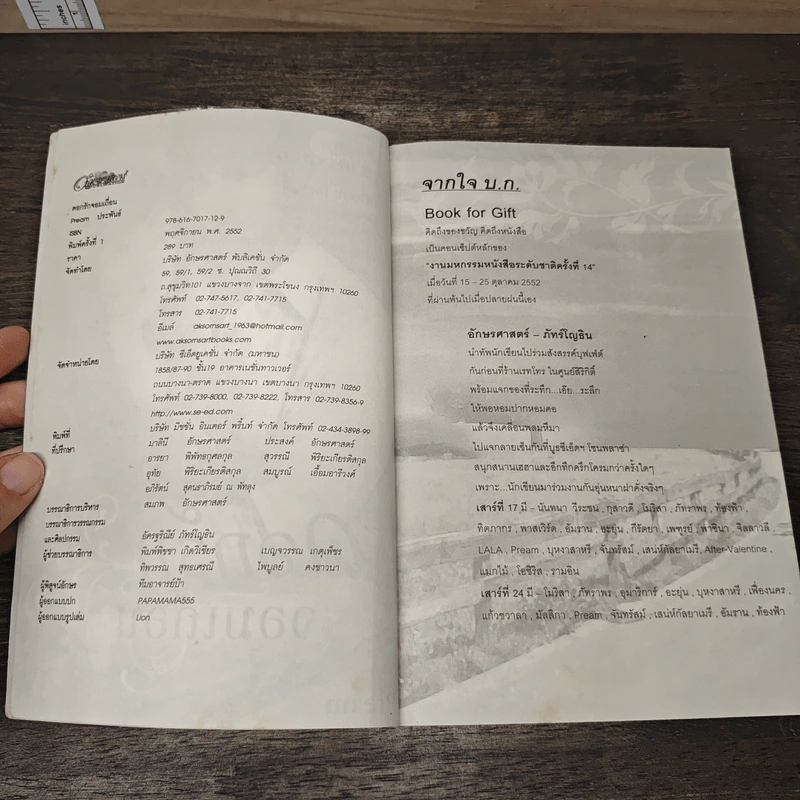 inches
ดอกรักจอมเถื่อน
Pream ประพันธ์
ISBN 978-616-7017-12-9
พิมพ์ครั้งที่ 1 พฤศจิกายน พ.ศ. 2552
ราคา 289 บาท
จัดทำโดย บริษัท อักษรศาสตร์ พับลิเคชั่น จำกัด
59, 59/1, 59/2 ซ. ปุณณวิถี 30
ถ.สุขุมวิท101 แขวงบางจาก เขตพระโขนง กรุงเทพฯ 10260
โทรศัพท์ 02-747-5617, 02-741-7715
โทรสาร 02-741-7715
อีเมล์ aksornsart_1963@hotmail.com
www.aksornsartbooks.com
จัดจำหน่ายโดย บริษัท ซีเอ็ดยูเคชั่น จำกัด (มหาชน)
1858/87-90 ชั้น19 อาคารเนชั่นทาวเวอร์
ถนนบางนา-ตราด แขวงบางนา เขตบางนา กรุงเทพฯ 10260
โทรศัพท์ 02-739-8000, 02-739-8222, โทรสาร 02-739-8356-9
http://www.se-ed.com
พิมพ์ที่ บริษัท มีชชัน อินเตอร์ พริ้นท์ จำกัด โทรศัพท์ 02-434-3898-99
ที่ปรึกษา บาลินี อักษรศาสตร์ ประสงค์ อักษรศาสตร์
อารยา พิพัทธกุศลกุล สุวรรณี พิริยะเกียรติสกุล
อุทัย พิริยะเกียรติสกุล สมบูรณ์ เอื้อมอารีวงศ์
อภิรัตน์ สุคนธาภิรมย์ ณ พัทลุง
สมภพ อักษรศาสตร์
บรรณาธิการบริหาร
บรรณาธิการวรรณกรรม
และศิลปกรรม อัครฐริณีย์ ภัทร์โญอิน
ผู้ช่วยบรรณาธิการ พิมพ์พิชชา เกิดวิเชียร เบญจวรรณ เกตุเพ็ชร
ทิพวรรณ สุทธเศรณี ไพบูลย์ คงชาวนา
ผู้พิสูจน์อักษร ทีมอาจารย์ป้า
ผู้ออกแบบปก PAPAMAMA555
ผู้ออกแบบรูปเล่ม Lion
จากใจ บ.ก.
Book for Gift
คิดถึงของขวัญ คิดถึงหนังสือ
เป็นคอนเซ็ปต์หลักของ
"งานมหกรรมหนังสือระดับชาติครั้งที่ 14"
เมื่อวันที่ 15 – 25 ตุลาคม 2552
ที่ผ่านพ้นไปเมื่อปลายฝนนี้เอง
อักษรศาสตร์ – ภัทร์โญอิน
นำทัพนักเขียนไปร่วมสังสรรค์บุฟเฟ่ต์
กันก่อนที่ร้านเรทโทร ในศูนย์สิริกิติ์
พร้อมแจกของที่ระทึก...เอ๊ย...ระลึก
ให้พอหอมปากหอมคอ
แล้วจึงเคลื่อนพลมหึมา
ไปแจกลายเซ็นกันที่บูธซีเอ็ดฯ โซนพลาซ่า
สนุกสนานเฮฮาและอึกทึกครึกโครมกว่าครั้งใดๆ
เพราะ...นักเขียนมาร่วมงานกันอุ่นหนาฝาคั่งจริงๆ
เสาร์ที่ 17 มี – นันทนา วีระชน , กุลาวดี , โมริสา , ภัทราพร , ท้องฟ้า ,
ทิตภากร , พาสเวิร์ด , อัมราน , อะยุ่น , กีรัตยา , เพฑูรย์ , พาซินา , จิลลาวลี
LALA , Pream , บุหงาสาหรี , จันทรัสม์ , เสน่ห์กัลยาเมรี , After-Valentine ,
แมกไม้ , โอซิริส , รามอิน
เสาร์ที่ 24 มี – โมริสา , ภัทราพร , อุมาริการ์ , อะยุ่น , บุหงาสาหรี , เฟื่องนคร ,
แก้วชวาลา , มัลลิกา , Pream , จันทรัสม์ , เสน่ห์กัลยาเมรี , อัมราน , ท้องฟ้า